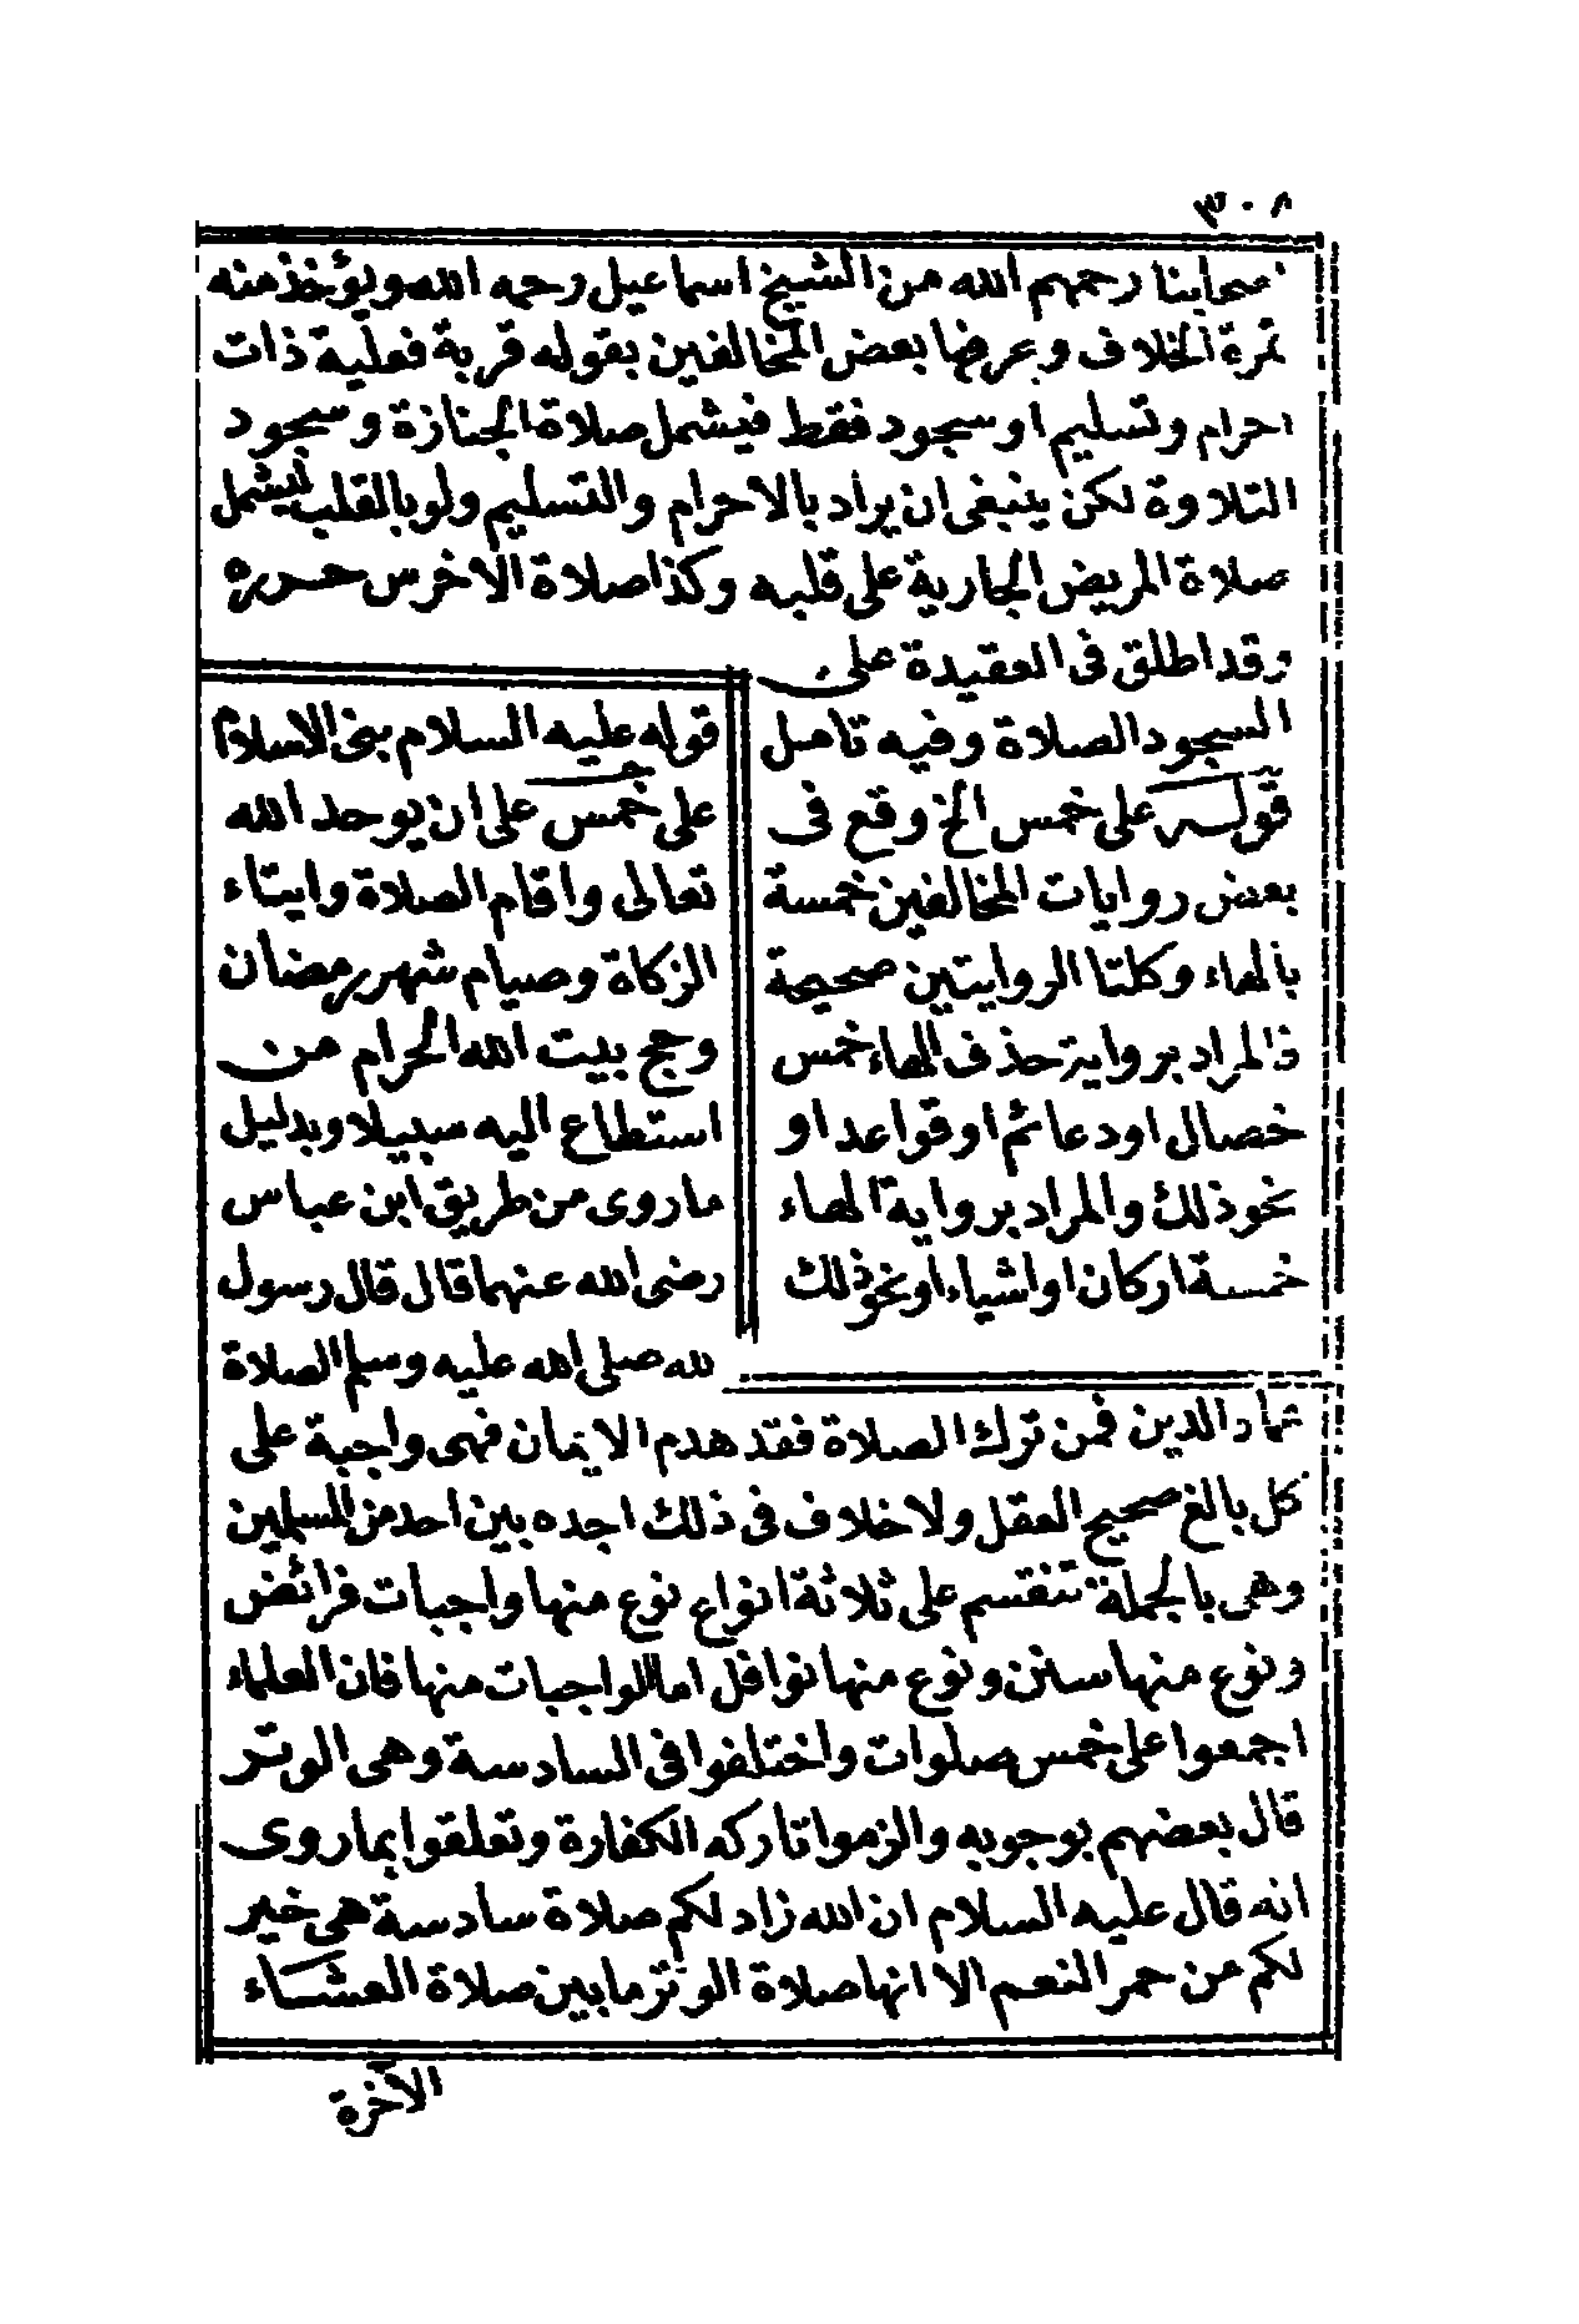 ٣٠٨
صحابنا رحمهم الله من الشيخ اسماعيل رحمه الله ويؤخذ منه
ثمرة الخلاف وعرفها بعض المخالفين بقوله قربة فعلية ذات
احرام وتسليم او سجود فقط فيشمل صلاة الجنازة وسجود
التلاوة لكن ينبغى ان يراد بالاحرام والتسليم ولو بالقلب ليشمل
صلاة المريض الجارية على قلبه وكذا صلاة الاخرس حرره
وقد اطلق فى العقيدة على
السجود الصلاة وفيه تامل
قوله على خمس الخ وقع فى
بعض روايات المخالفين خمسة
بالهاء وكلتا الروايتين صحيحة
فالمراد برواية حذف الهاء خمس
خصال اودعائم اوقواعد او
نحو ذلك والمراد برواية الهاء
خمسة اركان او اشياء او نحو ذلك
قوله عليه السلام بنى الاسلام
على خمس على ان يوحد الله
تعالى واقام الصلاة وايتاء
الزكاة وصيام شهر رمضان
وحج بيت الله الحرام من
استطاع اليه سبيلا وبدليل
ماروى من طريق ابن عباس
رضى الله عنهما قال قال رسول
لله صلى الله عليه وسلم الصلاة
عماد الدين فمن ترك الصلاة فقد هدم الايمان فهى واجبة على
كل بالغ صحيح العقل ولا خلاف فى ذلك اجده بين احد من المسلمين
وهى بالجملة تنقسم على ثلاثة انواع نوع منها واجبات فرائض
ونوع منها سنن ونوع منها نوافل اما الواجبات منها فان العلماء
اجمعوا على خمس صلوات واختلفوا فى السادسة وهى الوتر
قال بعضهم بوجوبه والزموا تاركه الكفارة وتعلقوا بما روى
انه قال عليه السلام ان الله زاد لكم صلاة سادسة هى خير
لكم من حمر النعم الا انها صلاة الوتر ما بين صلاة العشاء
الآخرة